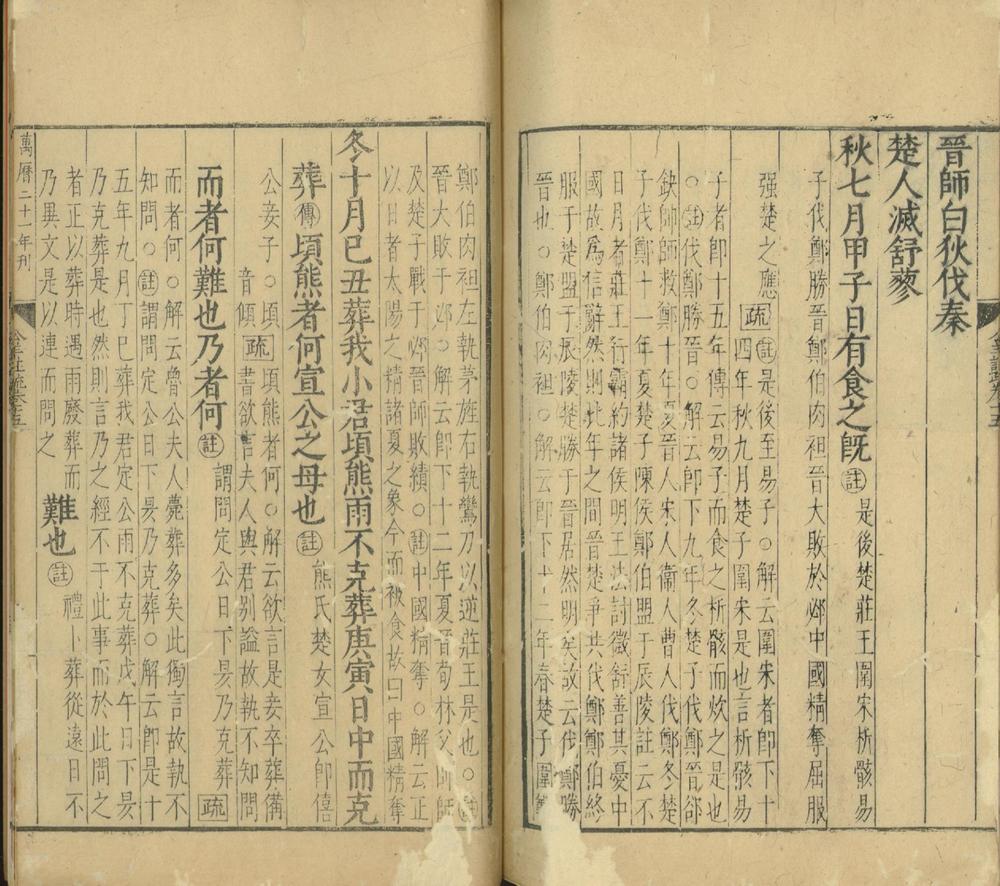 晉師白狄伐秦
楚人滅舒蓼
秋七月甲子日有食之旣註是後楚莊王圍宋析骸易
子伐鄭勝晉鄭伯肉袒晉大敗於邲中國精奪屈服
强楚之應疏註是後至易子○解云圍宋者卽下十
四年秋九月楚子圍宋是也言析骸易
子者卽十五年傳云易子而食之析骸而炊之是也
○註伐鄭勝晉○解云卽下九年冬楚子伐鄭晉郤
缺帥師救鄭十年夏晉人宋人衞人曹人伐鄭冬楚
子伐鄭十一年夏楚子陳侯鄭伯盟于辰陵註云不
日月者莊王行霸約諸侯明王法討徵舒善其憂中
國故爲信辭然則比年之間晉楚爭共伐鄭鄭伯終
服于楚盟于辰陵楚勝于晉居然明矣故云伐鄭勝
晉也○鄭伯肉袒○解云卽下十二年春楚子圍鄭
鄭伯肉袒左執茅旌右執鸞刀以逆莊王是也○註
晉大敗于邲○解云卽下十二年夏晉荀林父帥師
及楚子戰于邲晉師敗績○註中國精奪○解云正
以日者太陽之精諸夏之象今而被食故曰中國精奪
冬十月巳丑葬我小君頃熊雨不克葬庚寅日中而克
葬傳頃熊者何宣公之母也註熊氏楚女宣公卽僖
公妾子○頃音傾疏頃熊者何○解云欲言是妾卒葬備
書欲言夫人與君别謚故執不知問
而者何難也乃者何註謂問定公日下昃乃克葬疏
而者何○解云曾公夫人薨葬多矣此獨言故執不
知問○註謂問定公日下昃乃克葬○解云卽是十
五年九月丁巳葬我君定公雨不克葬戊午日下昃
乃克葬是也然則言乃之經不于此事而於此問之
者正以葬時遇雨廢葬而
乃異文是以連而問之難也註禮卜葬從遠日不
萬曆二十一年刊